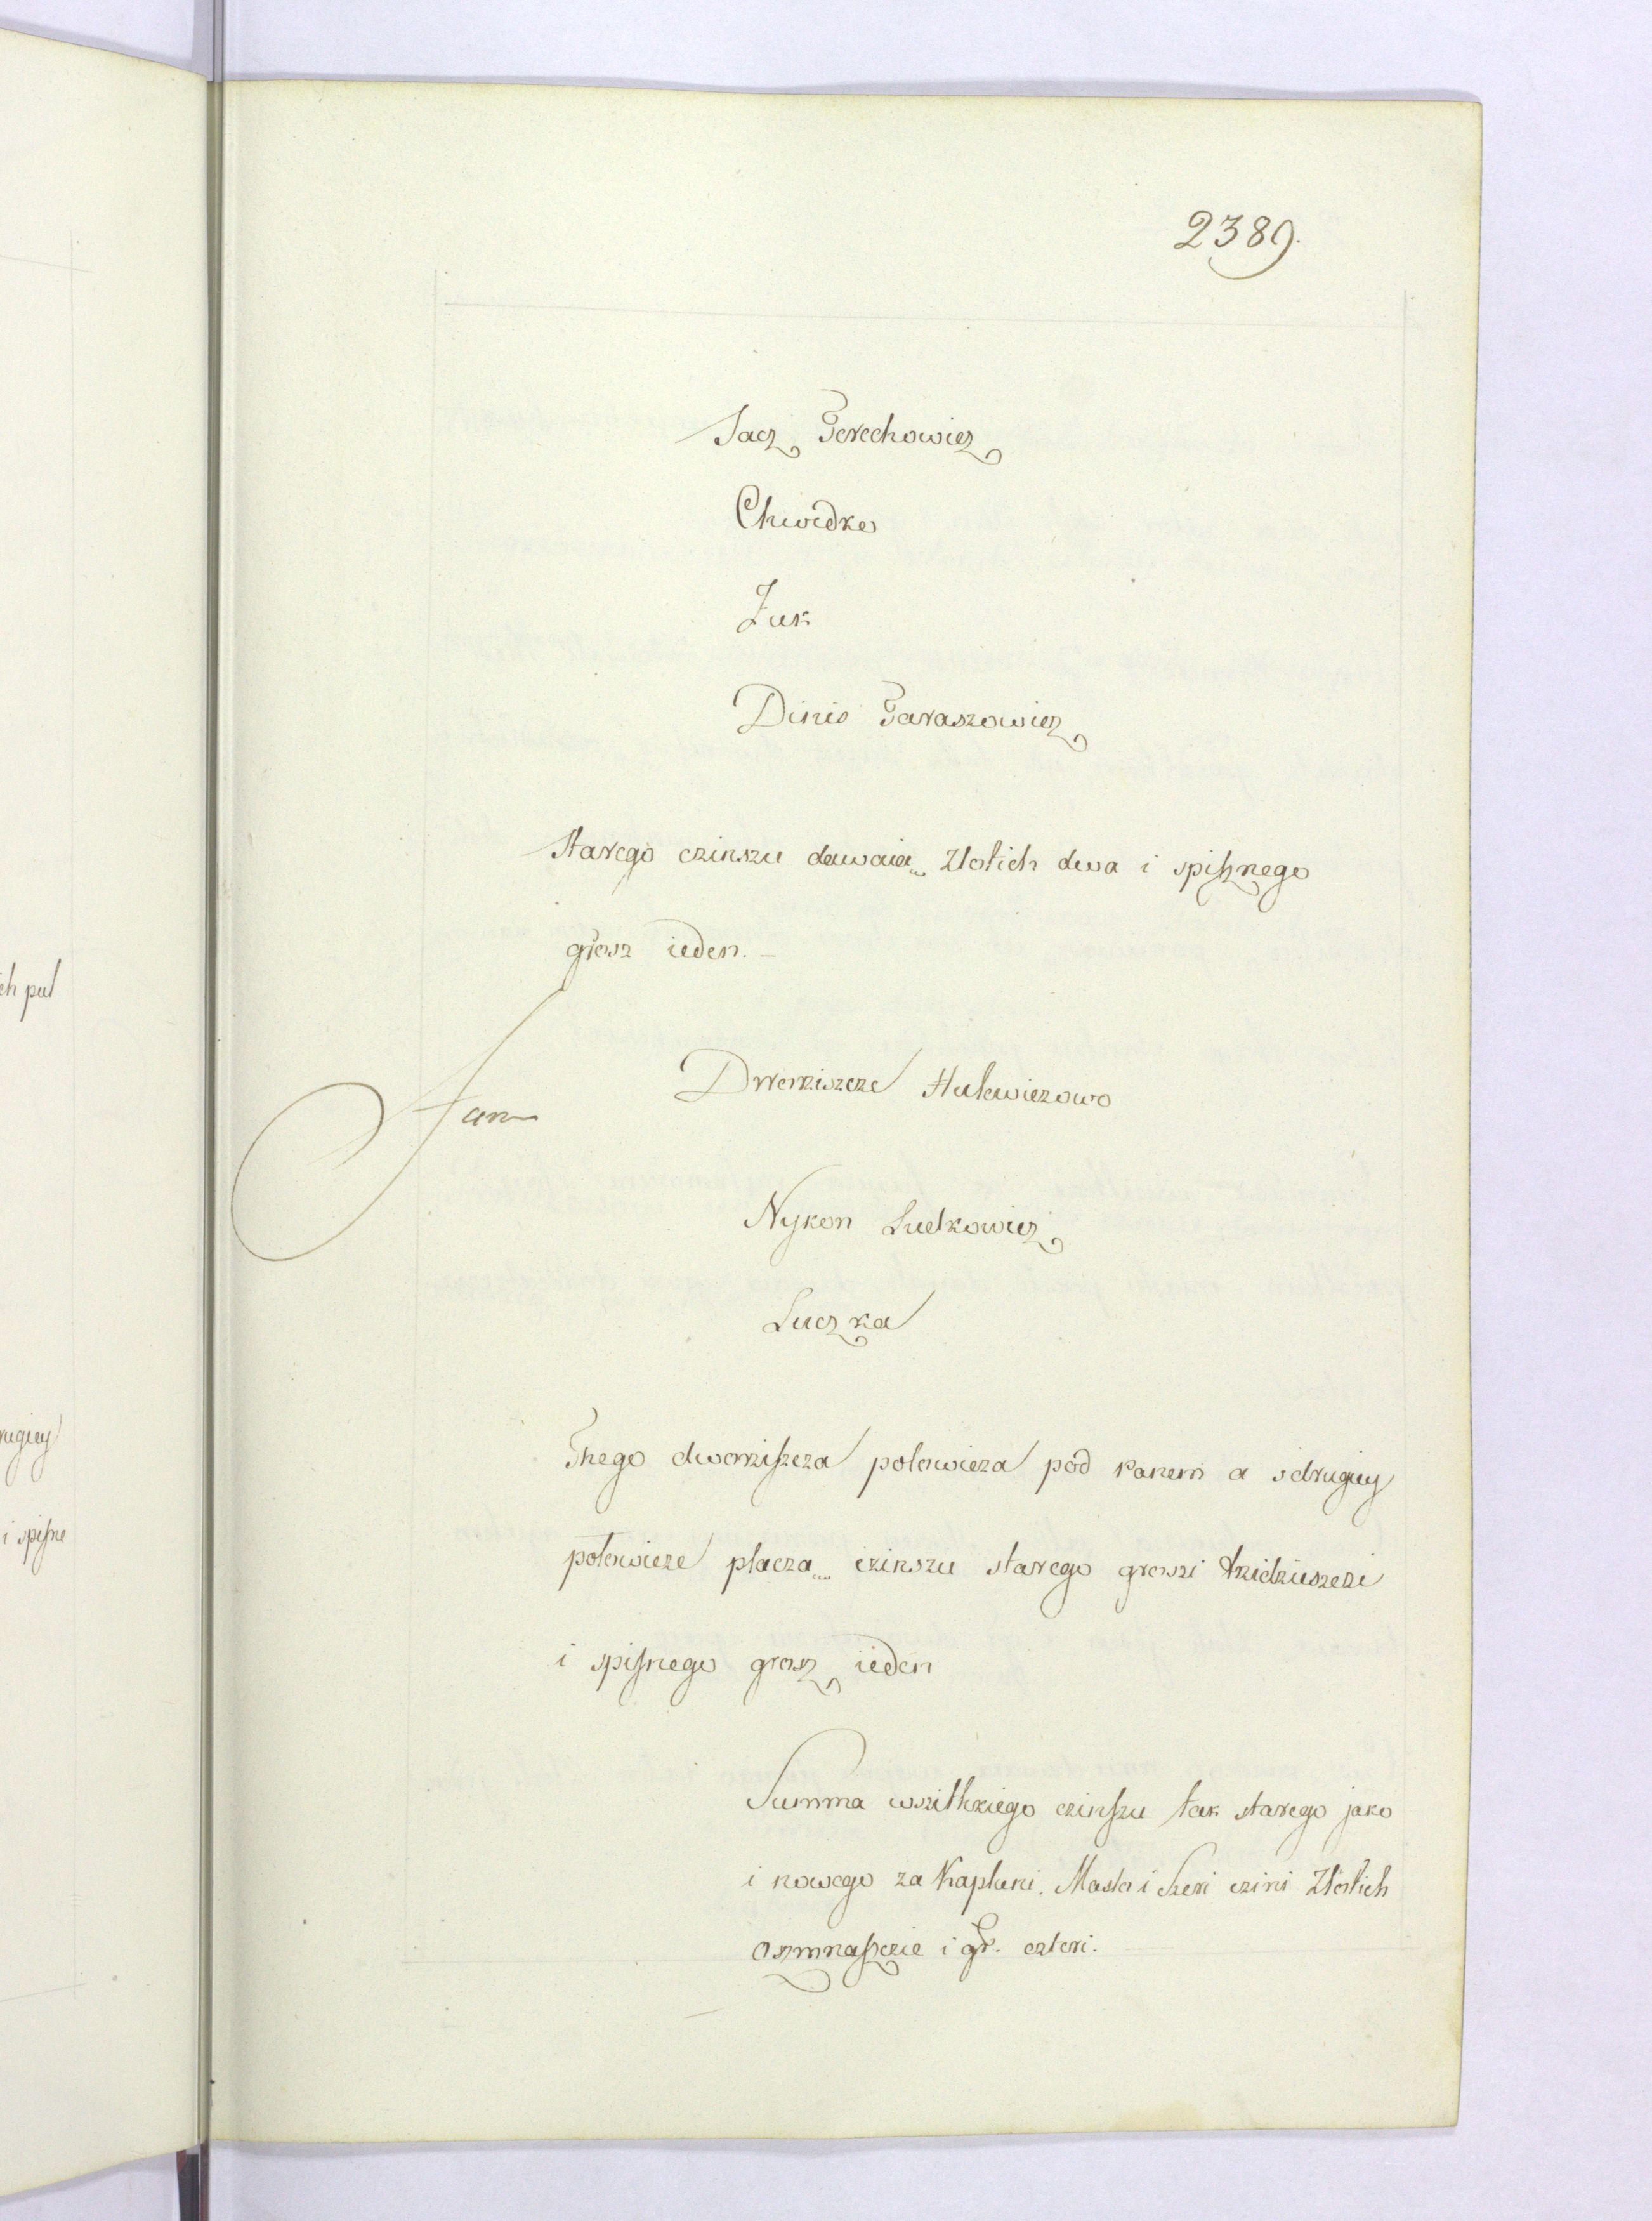 2389.
Jacz Terechowicz
Chwedko
Żuk
Dinis Taraszowicz
Starego czinszu dawaią Zlotich dwa i spiżnego
grosz ieden. –
Dworziszcze Hulewiczowo
Nykon Ludkowicz
Luczka
Tnego dworziszcza polowicza pod panem a sdrugiey
polowicze placzą czinszu starego groszi trzidzieszczi
i spiżnego grosz ieden
Summa wszitkiego czinszu tak starego jako
i nowego za Kapluni, Masla i Szeri czini Zlotich
oszmnaszczie i gr. czteri.
ch pul
rugiey
i spiżne